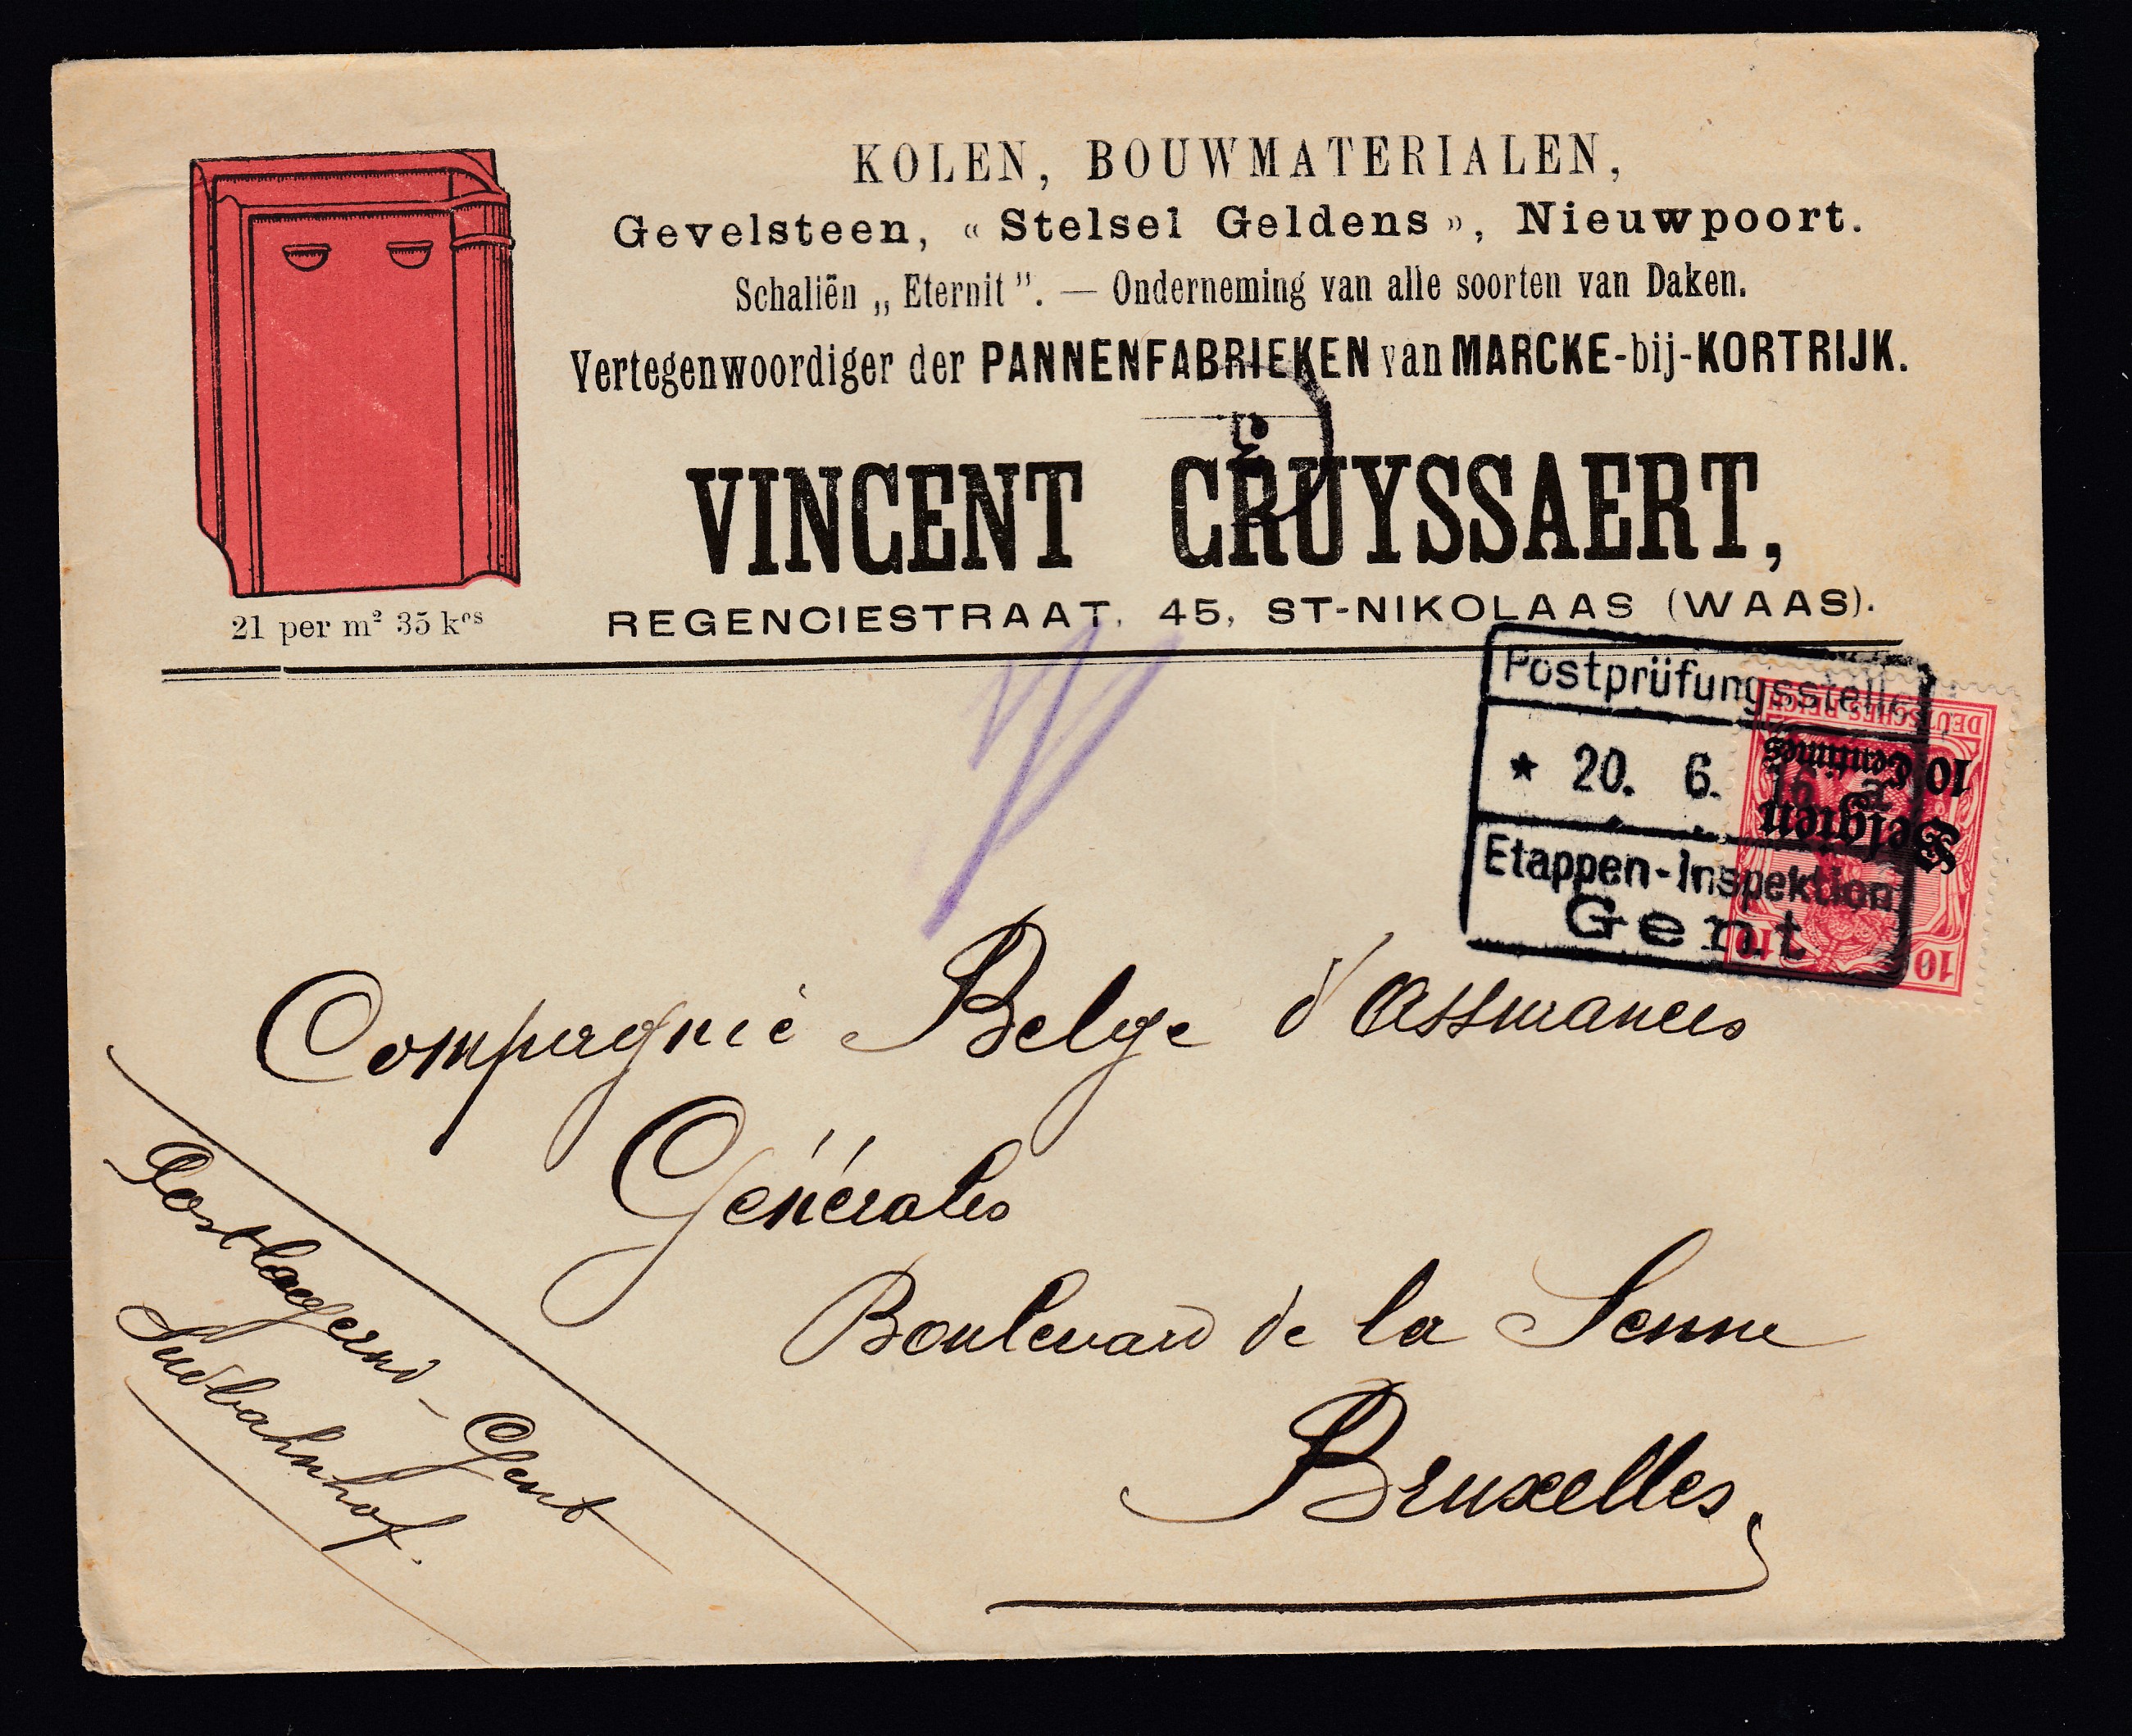 KOLEN, BOUWMATERIALEN,
Gevelsteen, « Stelsel Geldens », Nieuwpoort.
Schaliën „ Eternit ”. — Onderneming van alle soorten van Daken.
Vertegenwoordiger der PANNENFABRIEKEN van MARCKE-bij-KORTRIJK.
VINCENT CRUYSSAERT,
REGENCIESTRAAT, 45, ST-NIKOLAAS (WAAS).
21 per m² 35 kᵒˢ
Postprüfungsstelle
* 20. 6.
Etappen-Inspektion
Gent
DEUTSCHES REICH
10 Centimes
Belgien
10 10
Compagnie Belge d'Assurances
Générales
Boulevard de la Senne
Bruxelles
Postlagernd - Gent
Sudbahnhof.